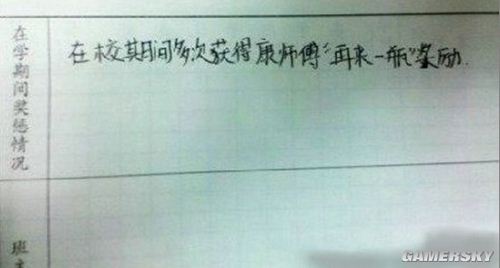 在学期间奖惩情况
在校期间多次获得康师傅“再来一瓶”奖励.
班主
GAMERSKY